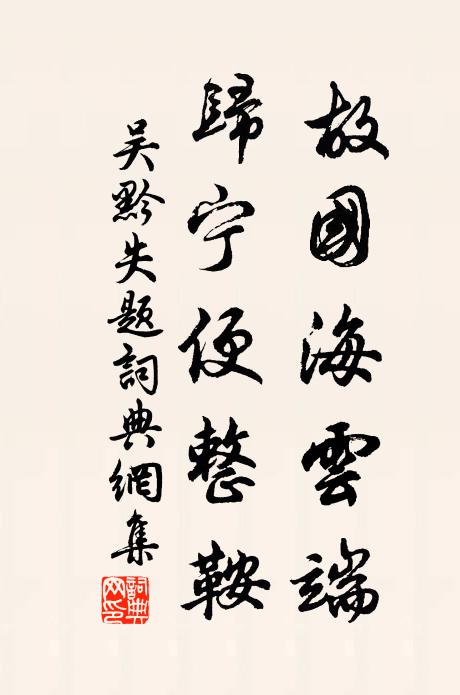 故國海雲端
歸宁便整鞍
吴黔失题詞典網集
詞典网印